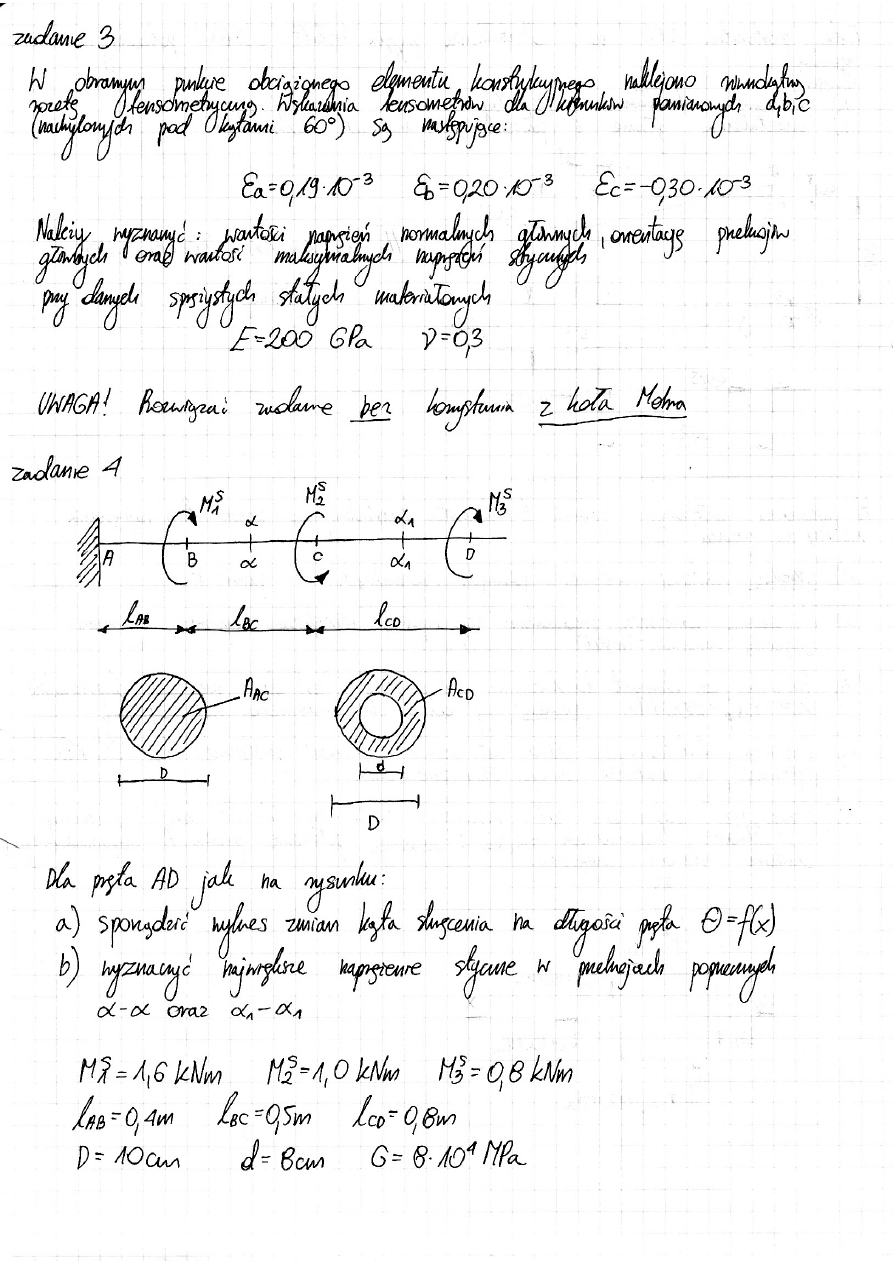 zadanie 3
W obranym punkcie obciążonego elementu konstrukcyjnego naklejono równokątną
rozetę tensometryczną. Wskazania tensometrów dla kierunków pomiarowych a,b,c
(nachylonych pod kątami 60°) są następujące:
εa=0,19·10⁻³ εb=0,20·10⁻³ εc=-0,30·10⁻³
Należy wyznaczyć: wartości naprężeń normalnych głównych, orientację przekrojów
głównych oraz wartość maksymalnych naprężeń stycznych
przy danych sprężystych stałych materiałowych
E=200 GPa ν=0,3
UWAGA! Rozwiązać zadanie bez korzystania z koła Mohra
zadanie 4
M₁ˢ M₂ˢ M₃ˢ
α α₁
A B α C α₁ D
lAB lBC lCD
AAC ACD
D d
D
Dla pręta AD jak na rysunku:
a) sporządzić wykres zmian kąta skręcenia na długości pręta Θ=f(x)
b) wyznaczyć największe naprężenie styczne w przekrojach poprzecznych
α-α oraz α₁-α₁
M₁ˢ=1,6 kNm M₂ˢ=1,0 kNm M₃ˢ=0,8 kNm
lAB=0,4m lBC=0,5m lCD=0,8m
D=10cm d=8cm G=8·10⁴ MPa